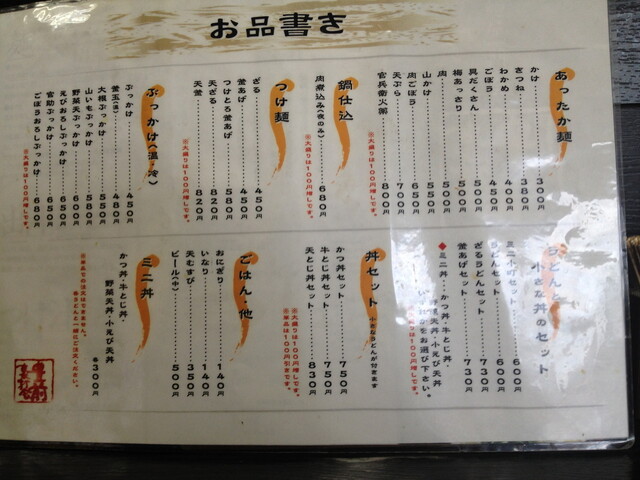 お品書き
あったか麺
かけ 300円
きつね 380円
わかめ 400円
ごぼう 450円
具だくさん 500円
梅あっさり 500円
肉 550円
山かけ 550円
肉ごぼう 650円
天ぷら 700円
官兵衛火鍋 800円
※大盛りは100円増しです。
鍋仕込
肉煮込み(夜のみ) 680円
※大盛りは100円増しです。
つけ麺
ざる 450円
釜あげ 450円
つけとろ釜あげ 580円
天ざる 820円
天釜 820円
※大盛りは100円増しです。
ぶっかけ(温・冷)
ぶっかけ 450円
釜玉(温) 480円
大根ぶっかけ 550円
山いもぶっかけ 580円
野菜天ぶっかけ 600円
えびおろしぶっかけ 650円
官助ぶっかけ 600円
ごぼうおろしぶっかけ 680円
※大盛りは100円増しです。
うどんと
小さな丼のセット
600円
うどんセット 600円
ざるうどんセット 730円
釜あげセット 730円
◆ミニ丼…かつ丼・牛とじ丼・
野菜天丼・小えび天丼
をお選び下さい。
丼セット 小さなうどんが付きます
かつ丼セット 750円
牛とじ丼セット 750円
天とじ丼セット 830円
※大盛りは100円増しです。
※単品は100円引きです。
ごはん・他
おにぎり 140円
いなり 140円
天むすび 350円
ビール(中) 500円
ミニ丼
かつ丼・牛とじ丼・
野菜天丼・小えび天丼
各300円
※単品での注文は出来ません。
うどんと一緒にご注文ください。